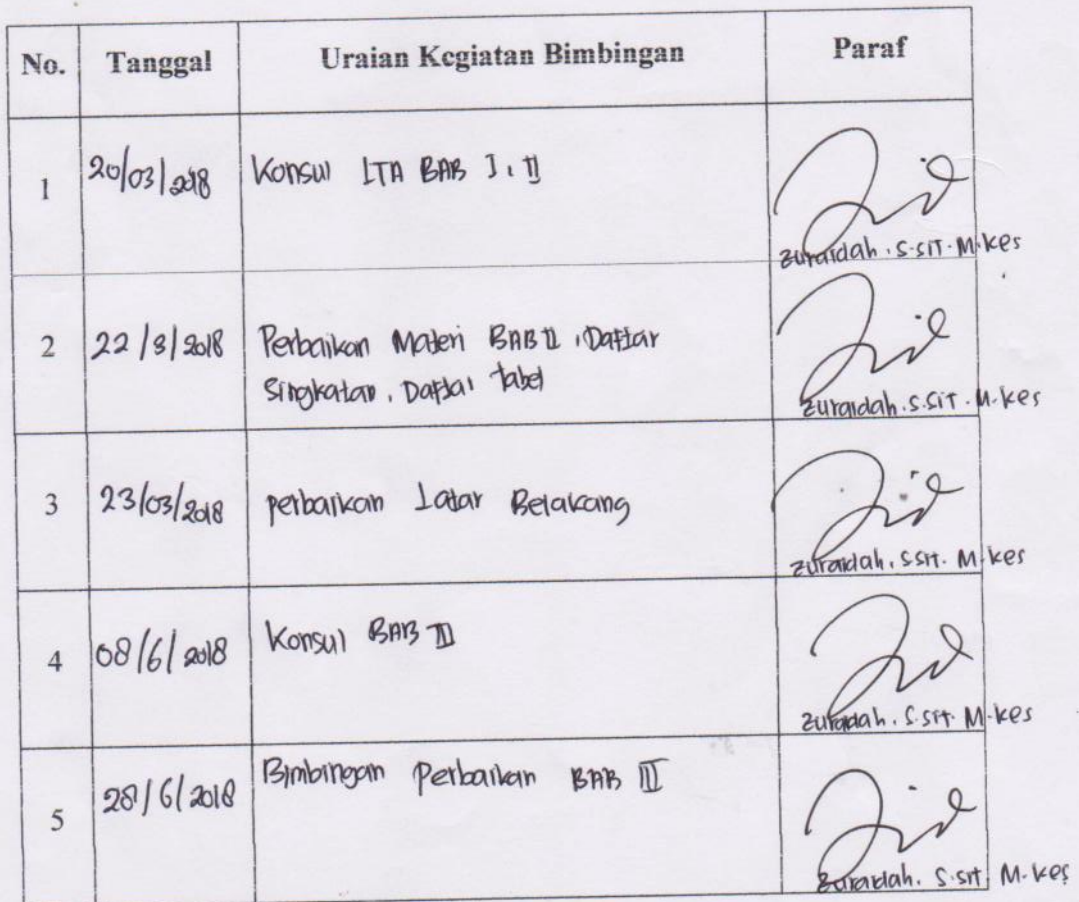 No. Tanggal Uraian Kegiatan Bimbingan Paraf
1 20/03/2018 Konsul LTA BAB I, II
Zuraidah. S.SiT. M.kes
2 22/3/2018 Perbaikan Materi BAB II, Daftar
Singkatan, Daftar tabel
Zuraidah. S.SiT. M.kes
3 23/03/2018 perbaikan Latar Belakang
Zuraidah. S.SiT. M.kes
4 08/6/2018 Konsul BAB
Zuraidah. S.SiT. M.kes
5 28/6/2018 Bimbingan Perbaikan BAB III
Zuraidah. S.SiT. M.kes